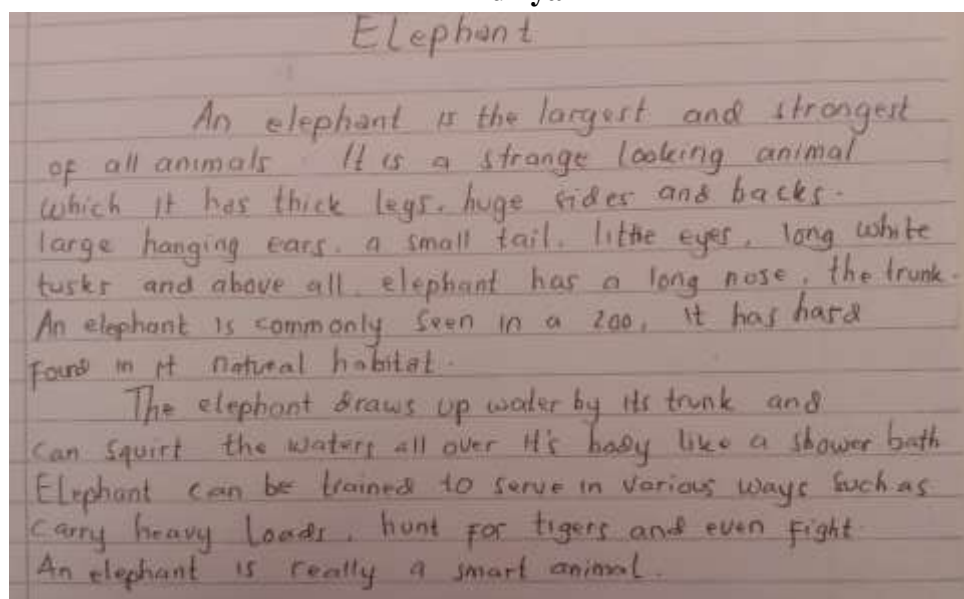 Elephant
An elephant is the largest and strongest
of all animals. It is a strange looking animal
which it has thick legs. huge sides and backs.
large hanging ears. a small tail. little eyes. long white
tusks and above all. elephant has a long nose, the trunk.
An elephant is commonly seen in a zoo, it has hard
found in it natural habitat.
The elephant draws up water by its trunk and
can squirt the waters all over it's body like a shower bath
Elephant can be trained to serve in various ways such as
carry heavy loads, hunt for tigers and even fight.
An elephant is really a smart animal.